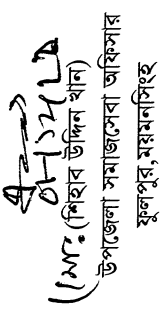 (শিহাব উদ্দিন খান)
উপজেলা সমাজসেবা অফিসার
ফুলপুর,ময়মনসিংহ